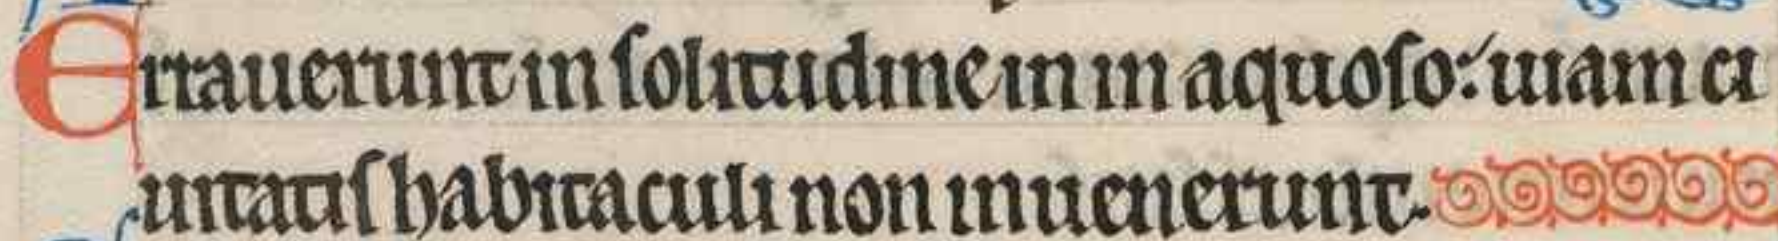 Errauerunt in ſolitudine in in aquoſo: uiam ci
uitatiſ habitaculi non inuenerunt.